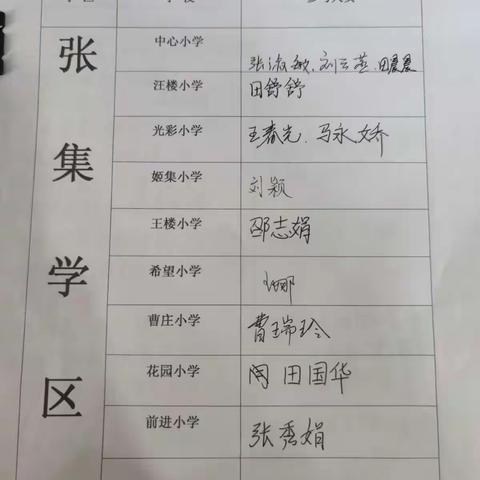 张集学区
中心小学
张淑敏、刘云燕、田晨晨
汪楼小学
田舒舒
光彩小学
王春光、马永娇
姬集小学
刘颖
王楼小学
邵志娟
希望小学
娜
曹庄小学
曹瑞玲
花园小学
田国华
前进小学
张秀娟